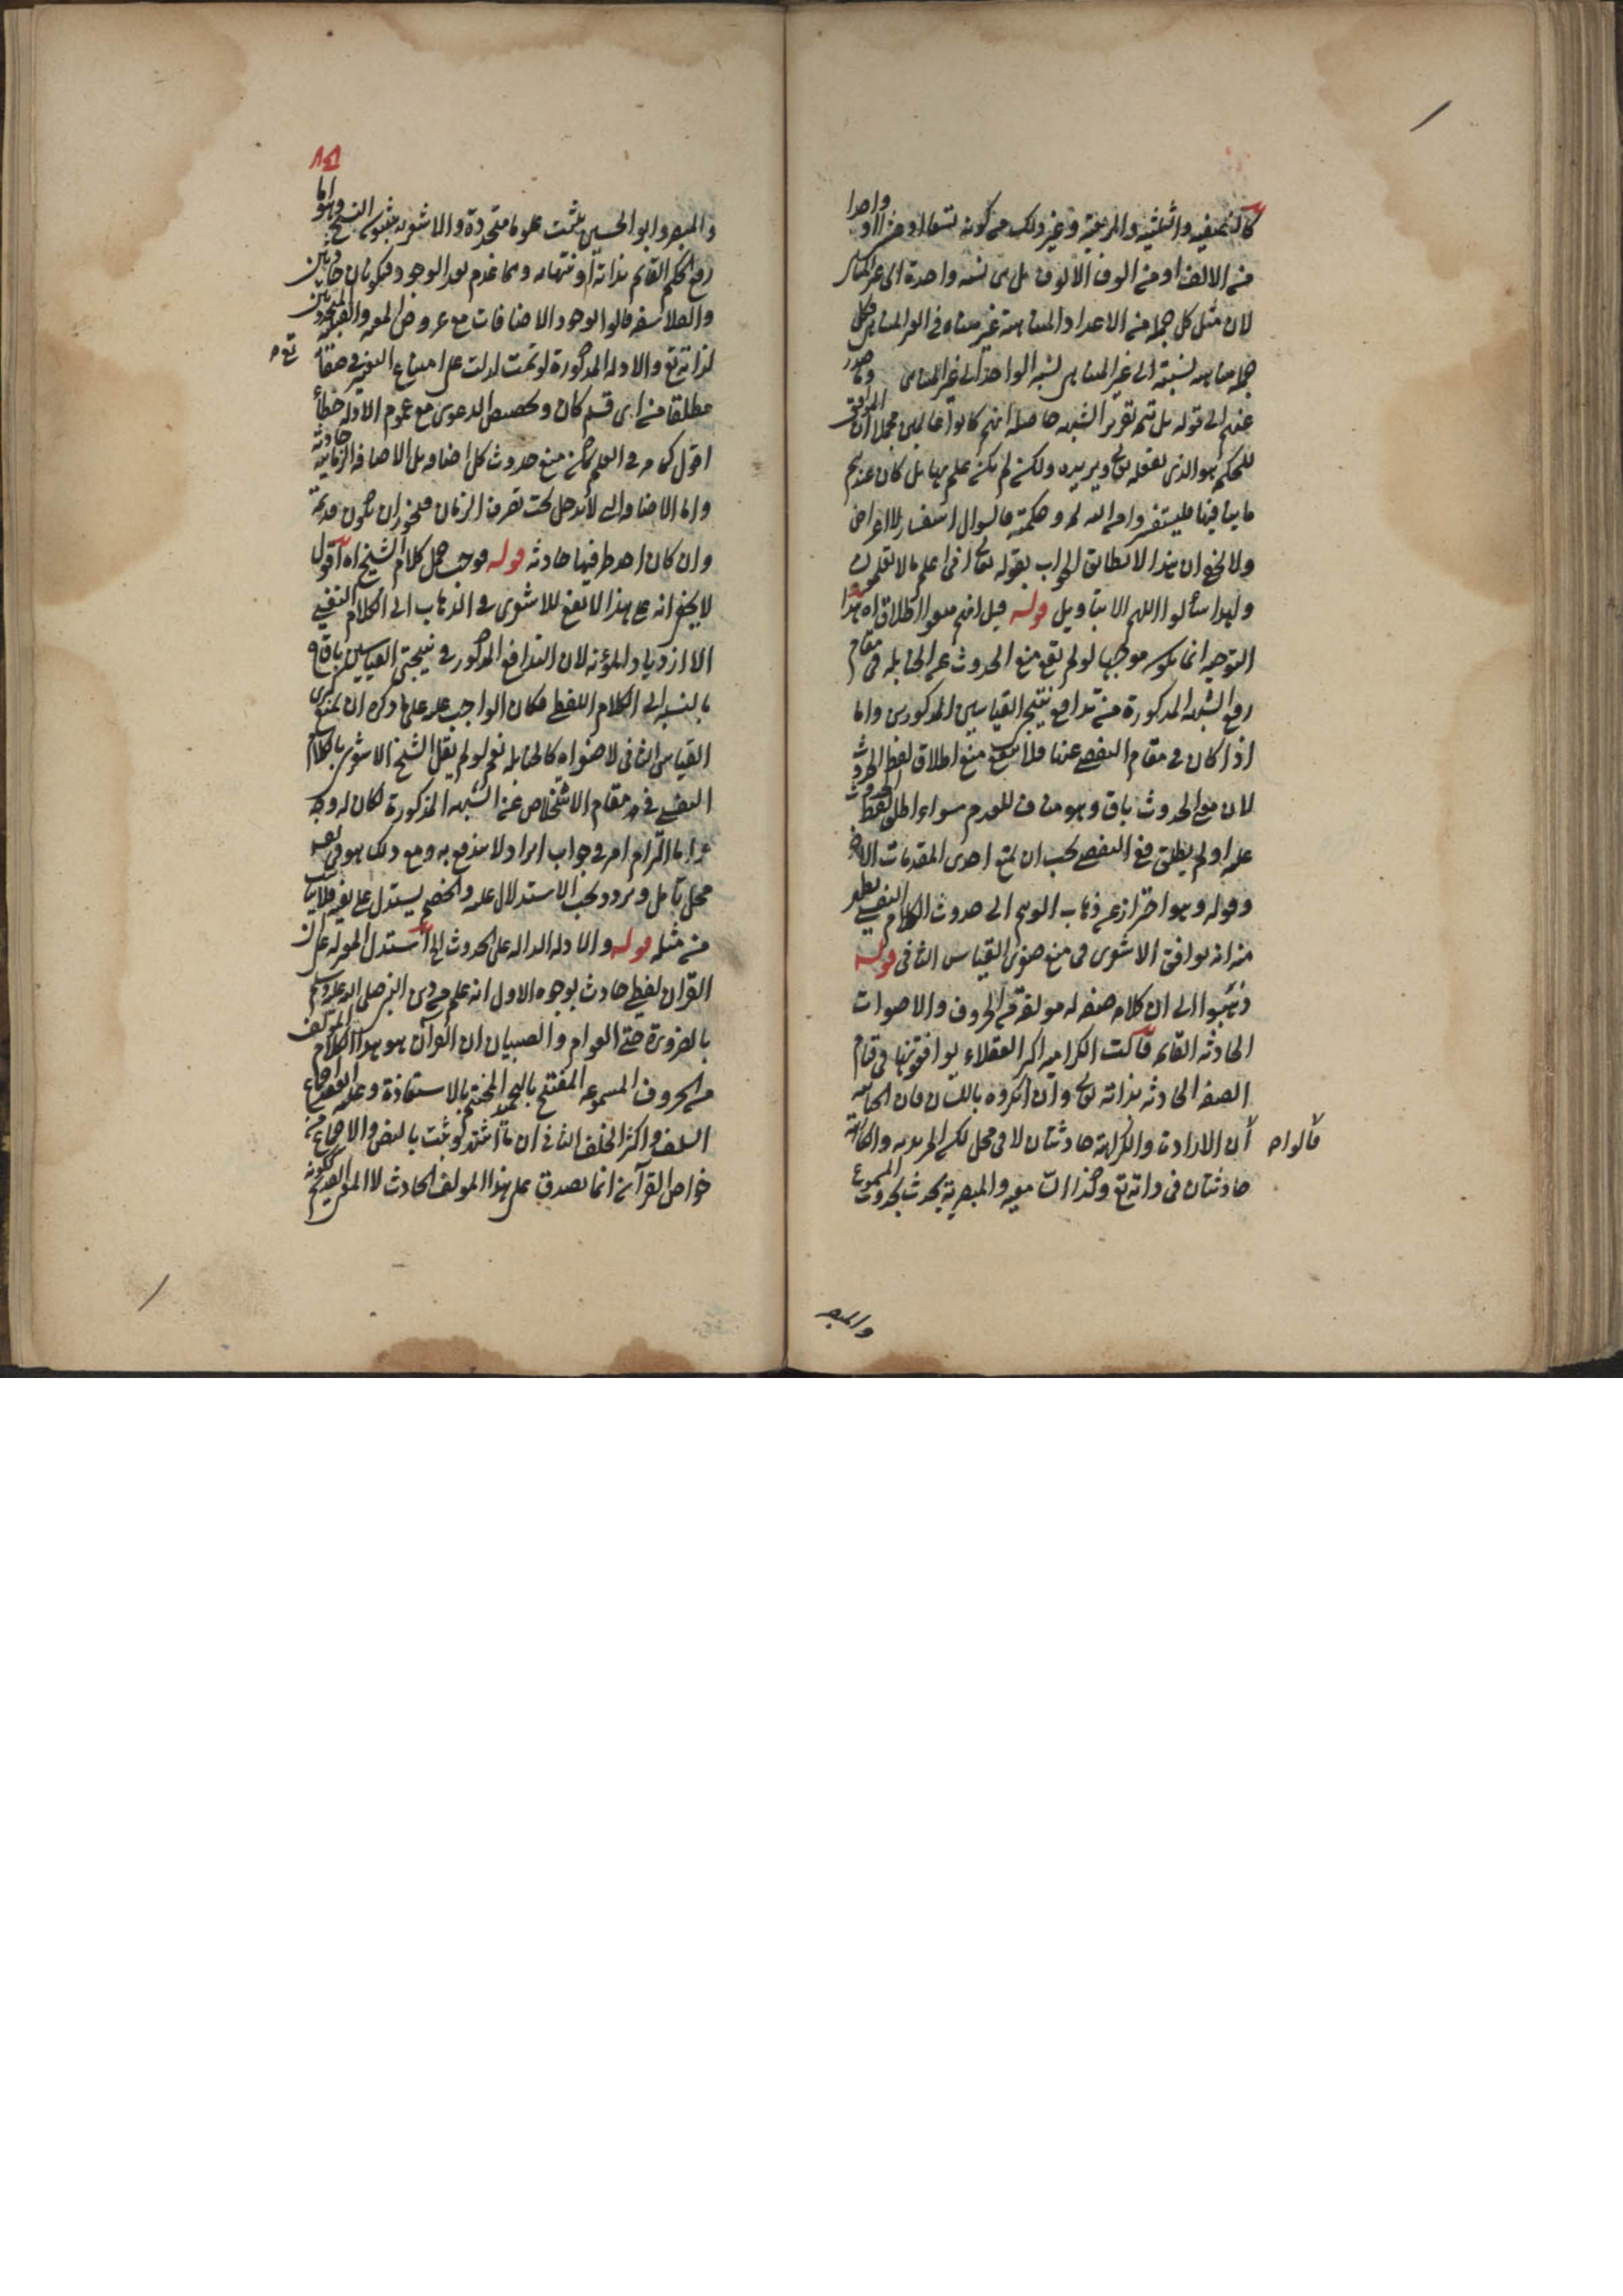 كالنصفية والثلثية والربعية وغير ذلك من كونه تسعا او عشرا او واحدا
من الالف او من الوف الالوف بل من نسبة واحدة الى غير المتناهى
لان مثل كل جملة من الاعداد المتناهية غير متناه فى المراتب وكل
جملة متناهية نسبته الى غير المتناهى نسبة الواحد الى غير المتناهى وما صدر
عنهم الى قوله بل تتمة تقرير الشبهة حاصله انهم كانوا عالمين مجملا ان
الحكم هو الذى يفعله تعالى ويريده ولكن لم يكن علم بها بل كان عندهم
ما ينافيها فليستفسروا من الله له وحكمته فالسؤال استفسار لا اعراض
ولا يخفى ان هذا لا يطابق الجواب بقوله تعالى انى اعلم ما لا تعلمون
ولهذا سألوا اللهم الا بتأويل قوله قيل انهم منعوا اطلاق اه هذا
التوجيه انما يكون موجها لو لم يقع منع الحدوث عن الحنابلة فى مقام
رفع الشبهة المذكورة من تدافع نتيجتى القياسين المذكورين واما
اذا كان فى مقام التفصى عنها فلا ينفع منع اطلاق لفظ الحدوث
لان معنى الحدوث باق وهو مناف للقدم سواء اطلق لفظ الحدوث
عليه او لم يطلق فى التفصى يجب ان يمنع احدى المقدمات الاخر
وقوله وهو احتراز عن ذهاب الوهم الى حدوث الكلام النفسى يظهر
منه انه يوافق الاشعرى فى منع صغرى القياس الثانى قوله
ذهبوا الى ان كلامه صفة له مؤلفة من الحروف والاصوات
الحادثة القائمة قالت الكرامية اكثر العقلاء يوافقوننا فى قيام
الصفة الحادثة بذاته تعالى وان انكروه باللسان فان الجبائية
قالوا ان الارادة والكراهة حادثتان لا فى محل لكن المريدية والكارهية
حادثتان فى ذاته تع وكذا السامعية والمبصرية تحدث بحدوث المسموع
والمبصر
والمبصر وابو الحسين يثبت علوما متجددة والاشعرية يثبتون النسخ وهو اما
رفع الحكم القائم بذاته او انتهاؤه وهما عدم بعد الوجود فيكونان حادثين
والفلاسفة قالوا بوجود الاضافات مع عروض المعية والقبلية المتجددتين
لذاته تع والادلة المذكورة لو تمت لدلت على امتناع التغير فى صفاته تع
مطلقا من اى قسم كان وتخصيص الدعوى مع عموم الادلة خطأ
اقول كما مر فى العلم يمكن منع حدوث كل اضافة بل الاضافة الزمانية حادثة
واما الاضافة التى لا تدخل تحت تصرف الزمان فيجوز ان تكون قديمة
وان كان احد طرفيها حادثة قوله فوجب حمل كلام الشيخ اه اقول
لا يخفى انه على هذا لا نفع للاشعرى فى الذهاب الى الكلام النفسى
الا ازدياد المؤنة لان التدافع المذكور فى نتيجتى القياسين باق
بالنسبة الى الكلام اللفظى فكان الواجب عليه على ما ذكره ان يمنع كبرى
القياس الثانى لا صغراه كالحنابلة نعم لو لم يقل الشيخ الاشعرى بالكلام
النفسى فى مقام الاستخلاص عن الشبهة المذكورة لكان له وجه
واما التزام امر فى جواب ايراد لا يندفع به ومع ذلك هو فى نفسه
محل تأمل وتردد يجب الاستدلال عليه والخصم يستدل على نفيه فلا يناسب
من مثله قوله والادلة الدالة على الحدوث الخ استدل المعتزلة على ان
القرآن لفظى حادث بوجوه الاول انه علم من دين النبى صلى الله عليه وسلم
بالضرورة حتى العوام والصبيان ان القرآن هو هذا الكلام المؤلف
من الحروف المسموعة المفتتح بالتحميد المختتم بالاستعاذة وعليه انعقد اجماع
السلف واكثر الخلف الثانى ان ما اشتهر وثبت بالنص والاجماع من
خواص القرآن انما يصدق على هذا المؤلف الحادث لا المعنى القديم ككونه